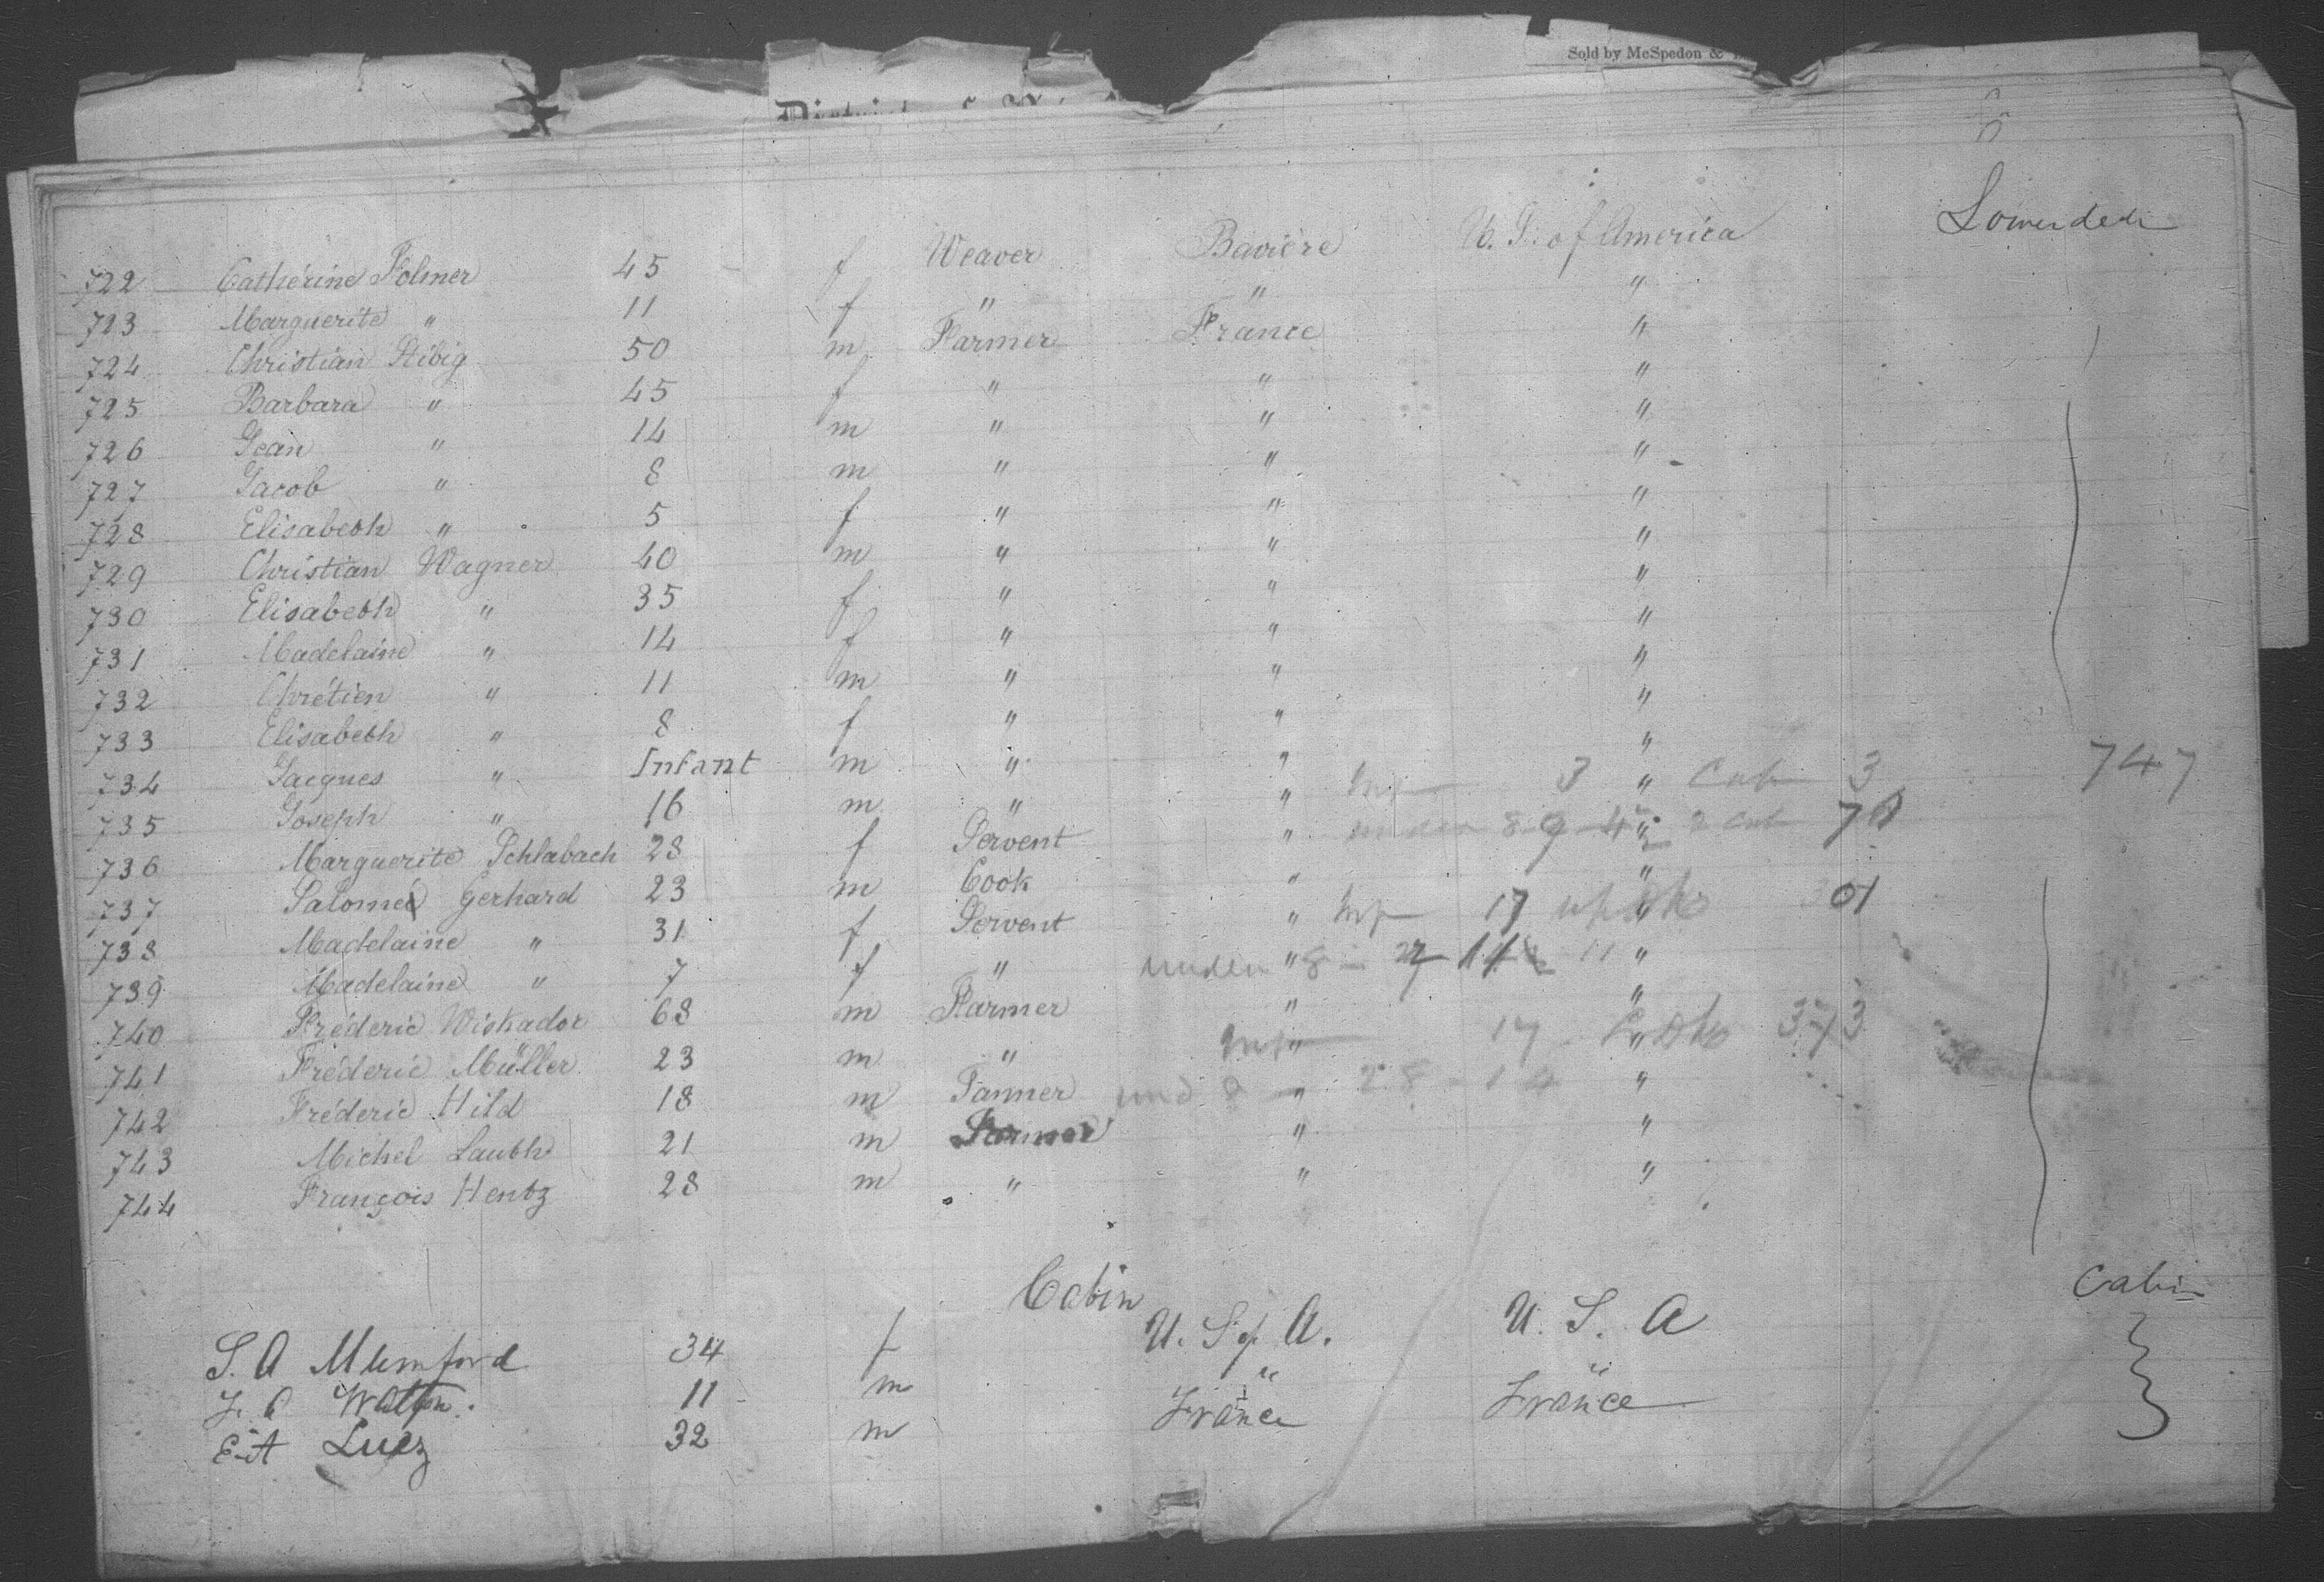 Sold by McSpedon &
District
Lowerdeck
722 Catherine Folmer 45 f Weaver Bavière U. S. of America
723 Marguerite " 11 f " " "
724 Christian Stibig 50 m Farmer France "
725 Barbara " 45 f " " "
726 Jean " 14 m " " "
727 Jacob " 8 m " " "
728 Elisabeth " 5 f " " "
729 Christian Wagner 40 m " " "
730 Elisabeth " 35 f " " "
731 Madelaine " 14 f " " "
732 Chrétien " 11 m " " "
733 Elisabeth " 8 f " " "
734 Jacques " Infant m " " "
735 Joseph " 16 m " " " 3 Cab 3 747
736 Marguerite Schlabach 28 f Servent " "
737 Salomé Gerhard 23 m Cook " "
738 Madelaine " 31 f Servent " 17 "
739 Madelaine " 7 f " under " 8 "
740 Fréderic Wiskador 68 m Farmer " "
741 Fréderic Müller 23 m " " 17 " 373
742 Fréderic Hild 18 m Tanner " 28 14 "
743 Michel Lauth 21 m Farmer " "
744 François Hentz 28 m " " "
Cabin Cabin
S. A Mumford 34 f U. S of A. U. S. A
Walton 11 m " "
Lutz 32 m France France